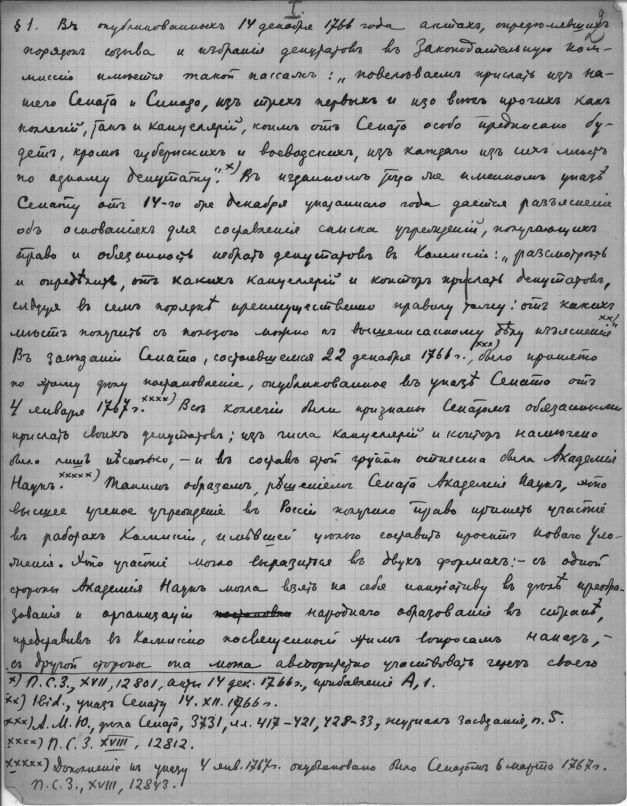 I.
2
§ 1. Въ опубликованныхъ 14 декабря 1766 года актахъ, опредѣлявшихъ
порядокъ созыва и избранія депутатовъ въ Законодательную Ком-
миссію имѣется такой пассажъ: „повелѣваемъ прислать изъ на-
шего Сената и Синода, изъ трехъ первыхъ и изо всѣхъ прочихъ какъ
коллегій, такъ и канцелярій, коимъ отъ Сената особо предписано бу-
детъ, кромѣ губернскихъ и воеводскихъ, изъ каждаго изъ сихъ мѣстъ
по одному депутату.“ x) Въ изданномъ тогда же именномъ указѣ
Сенату отъ 14-го же декабря указаннаго года дается разъясненіе
объ основаніяхъ для составленія списка учрежденій, получающихъ
право и обязанность избрать депутатовъ въ Комиссію: „разсмотрѣть
и опредѣлить, отъ какихъ канцелярій и конторъ прислать депутатовъ,
слѣдуя въ семъ порядкѣ преимущественно правилу : отъ какихъ
мѣстъ получить съ пользою можно къ вышеписанному дѣлу изъясненіе“ xx)
Въ засѣданіи Сената, состоявшемся 22 декабря 1766 г., xxx) было принято
по этому дѣлу постановленіе, опубликованное въ указѣ Сената отъ
4 января 1767 г. xxxx) Всѣ коллегіи были признаны Сенатомъ обязанными
прислать своихъ депутатовъ; изъ числа канцелярій и конторъ намѣчено
было лишь нѣсколько, – и въ составъ этой группы отнесена была Академія
Наукъ. xxxxx) Такимъ образомъ, рѣшеніемъ Сената Академія Наукъ, это
высшее ученое учрежденіе въ Россіи получило право принять участіе
въ работахъ Комиссіи, имѣвшей цѣлью составить проектъ новаго Уло-
женія. Это участіе могло выразиться въ двухъ формахъ: – съ одной
стороны Академія Наукъ могла взять на себя иниціативу въ дѣлѣ преобра-
зованія и организаціи народнаго образованія въ странѣ,
представивъ въ Комиссію посвященный этимъ вопросамъ наказъ, –
съ другой стороны она могла авторитетно участвовать черезъ своего
x) П.С.З., XVII, 12801, актъ 14 дек. 1766 г., прибавленіе А, 1.
xx) Ibid., указъ Сенату 14. XII. 1766 г.
xxx) А.М.Ю., дѣла Сената, 3731, лл. 417–421, 428–33, журналъ засѣданія, п. 5.
xxxx) П.С.З. XVIII, 12812.
xxxxx) Дополненіе къ указу 4 янв. 1767 г. опубликовано было Сенатомъ 6 марта 1767 г.
П.С.З., XVIII, 12843.